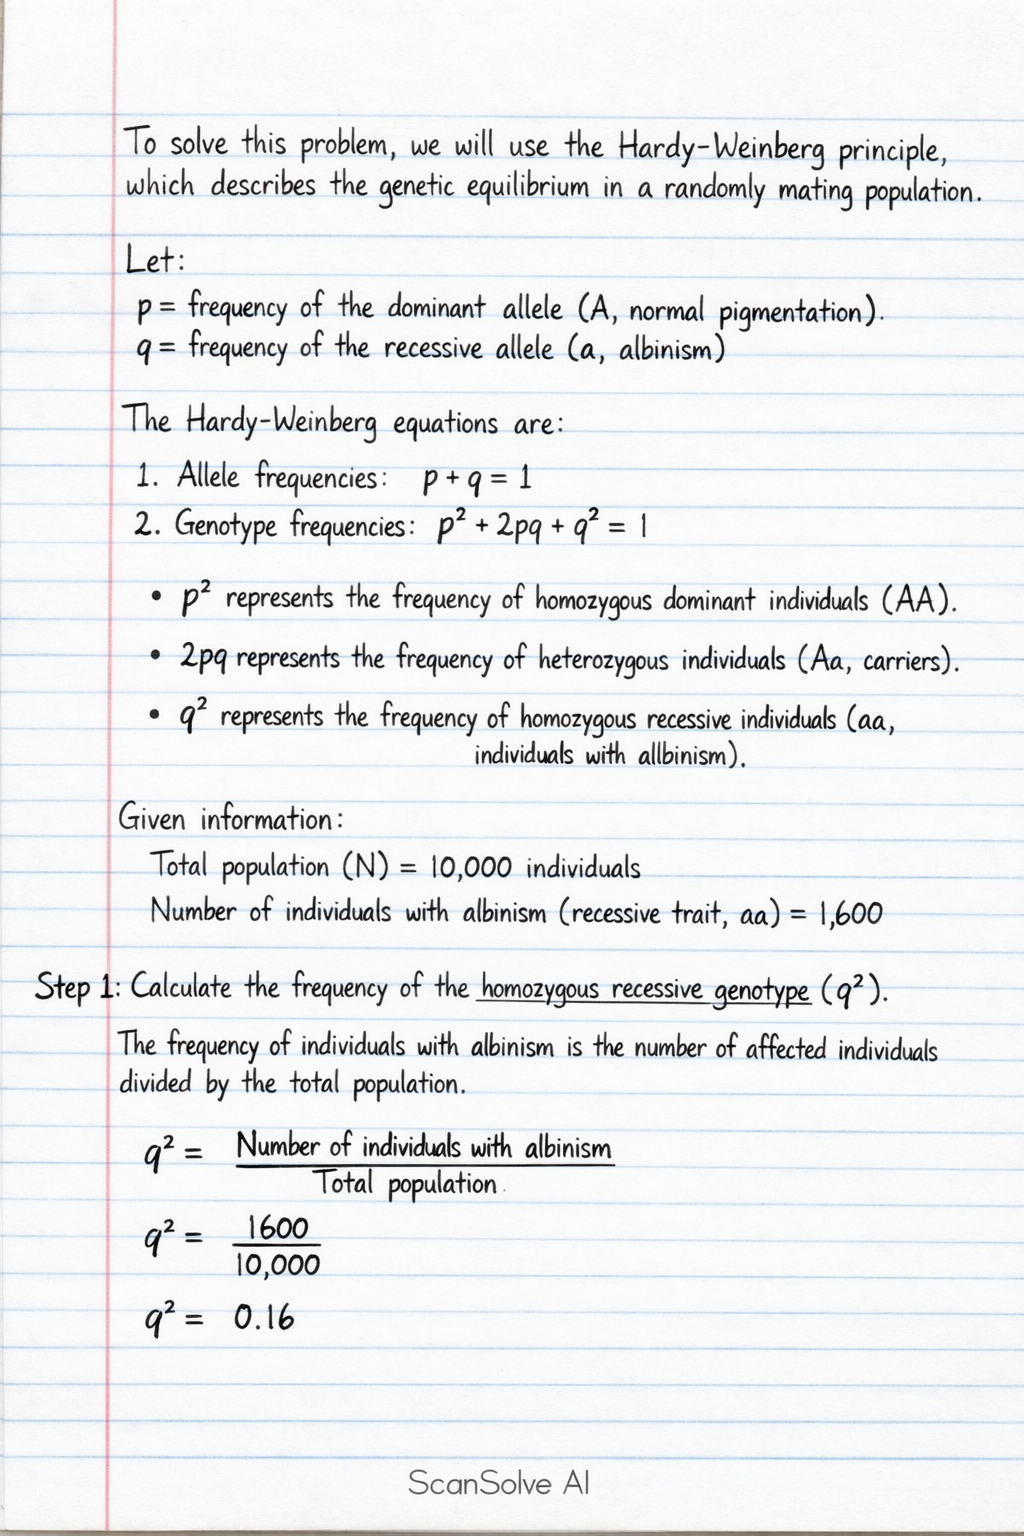 To solve this problem, we will use the Hardy-Weinberg principle,
which describes the genetic equilibrium in a randomly mating population.
Let:
p = frequency of the dominant allele (A, normal pigmentation).
q = frequency of the recessive allele (a, albinism)
The Hardy-Weinberg equations are:
1. Allele frequencies: p + q = 1
2. Genotype frequencies: p² + 2pq + q² = 1
• p² represents the frequency of homozygous dominant individuals (AA).
• 2pq represents the frequency of heterozygous individuals (Aa, carriers).
• q² represents the frequency of homozygous recessive individuals (aa,
individuals with allbinism).
Given information:
Total population (N) = 10,000 individuals
Number of individuals with albinism (recessive trait, aa) = 1,600
Step 1: Calculate the frequency of the homozygous recessive genotype (q²).
The frequency of individuals with albinism is the number of affected individuals
divided by the total population.
q² = Number of individuals with albinism
Total population
q² = 1600
10,000
q² = 0.16
ScanSolve AI